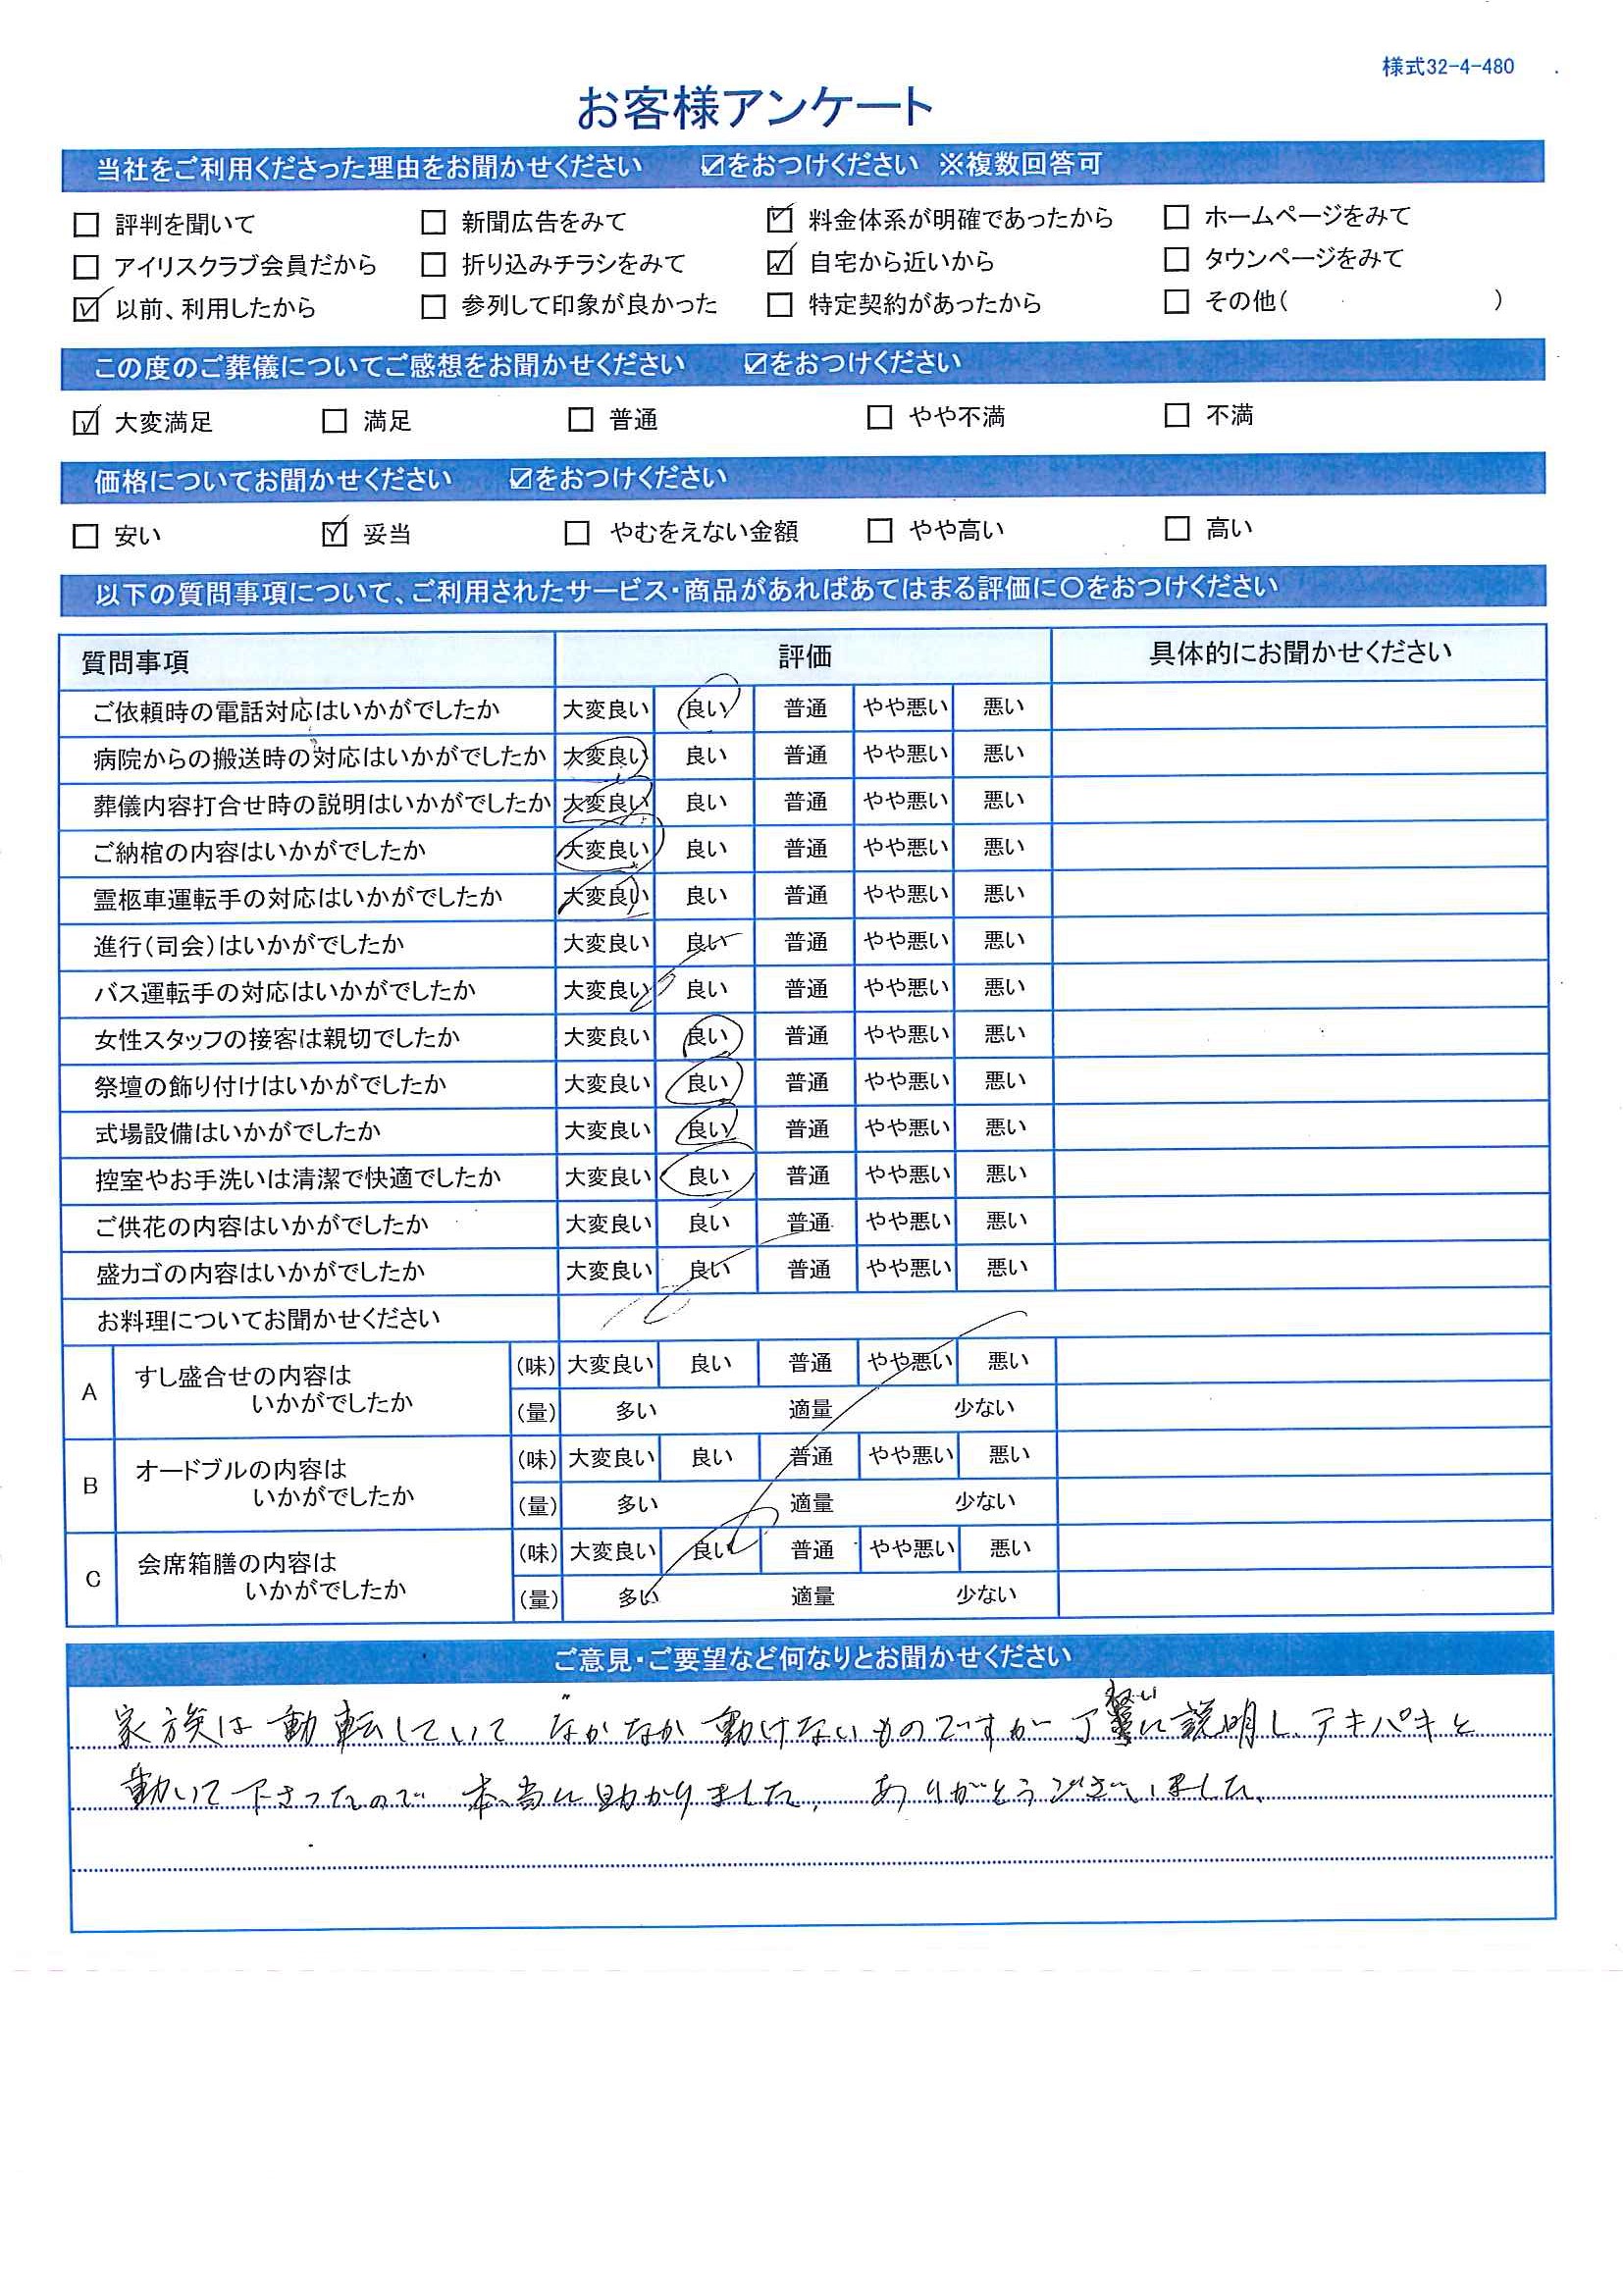 様式32-4-480
お客様アンケート
当社をご利用くださった理由をお聞かせください ☑をおつけください ※複数回答可
☐ 評判を聞いて ☐ 新聞広告をみて ☑ 料金体系が明確であったから ☐ ホームページをみて
☐ アイリスクラブ会員だから ☐ 折り込みチラシをみて ☑ 自宅から近いから ☐ タウンページをみて
☑ 以前、利用したから ☐ 参列して印象が良かった ☐ 特定契約があったから ☐ その他( )
この度のご葬儀についてご感想をお聞かせください ☑をおつけください
☑ 大変満足 ☐ 満足 ☐ 普通 ☐ やや不満 ☐ 不満
価格についてお聞かせください ☑をおつけください
☐ 安い ☑ 妥当 ☐ やむをえない金額 ☐ やや高い ☐ 高い
以下の質問事項について、ご利用されたサービス・商品があればあてはまる評価に〇をおつけください
質問事項 評価 具体的にお聞かせください
ご依頼時の電話対応はいかがでしたか 大変良い 良い 普通 やや悪い 悪い
病院からの搬送時の対応はいかがでしたか 大変良い 良い 普通 やや悪い 悪い
葬儀内容打合せ時の説明はいかがでしたか 大変良い 良い 普通 やや悪い 悪い
ご納棺の内容はいかがでしたか 大変良い 良い 普通 やや悪い 悪い
霊柩車運転手の対応はいかがでしたか 大変良い 良い 普通 やや悪い 悪い
進行(司会)はいかがでしたか 大変良い 良い 普通 やや悪い 悪い
バス運転手の対応はいかがでしたか 大変良い 良い 普通 やや悪い 悪い
女性スタッフの接客は親切でしたか 大変良い 良い 普通 やや悪い 悪い
祭壇の飾り付けはいかがでしたか 大変良い 良い 普通 やや悪い 悪い
式場設備はいかがでしたか 大変良い 良い 普通 やや悪い 悪い
控室やお手洗いは清潔で快適でしたか 大変良い 良い 普通 やや悪い 悪い
ご供花の内容はいかがでしたか 大変良い 良い 普通 やや悪い 悪い
盛カゴの内容はいかがでしたか 大変良い 良い 普通 やや悪い 悪い
お料理についてお聞かせください
A すし盛合せの内容は (味) 大変良い 良い 普通 やや悪い 悪い
いかがでしたか (量) 多い 適量 少ない
B オードブルの内容は (味) 大変良い 良い 普通 やや悪い 悪い
いかがでしたか (量) 多い 適量 少ない
C 会席箱膳の内容は (味) 大変良い 良い 普通 やや悪い 悪い
いかがでしたか (量) 多い 適量 少ない
ご意見・ご要望など何なりとお聞かせください
家族は動転していて なかなか動けないものですが 丁寧に説明し、テキパキと
動いて下さったので 本当に助かりました。 ありがとうございました。